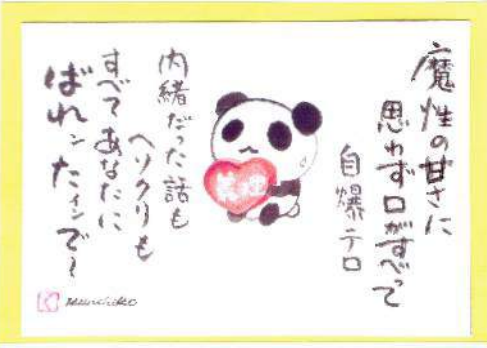 魔性の甘さに
思わず口がすべって
自爆テロ
内緒だった話も
ヘソクリも
すべてあなたに
ばれンたインで～